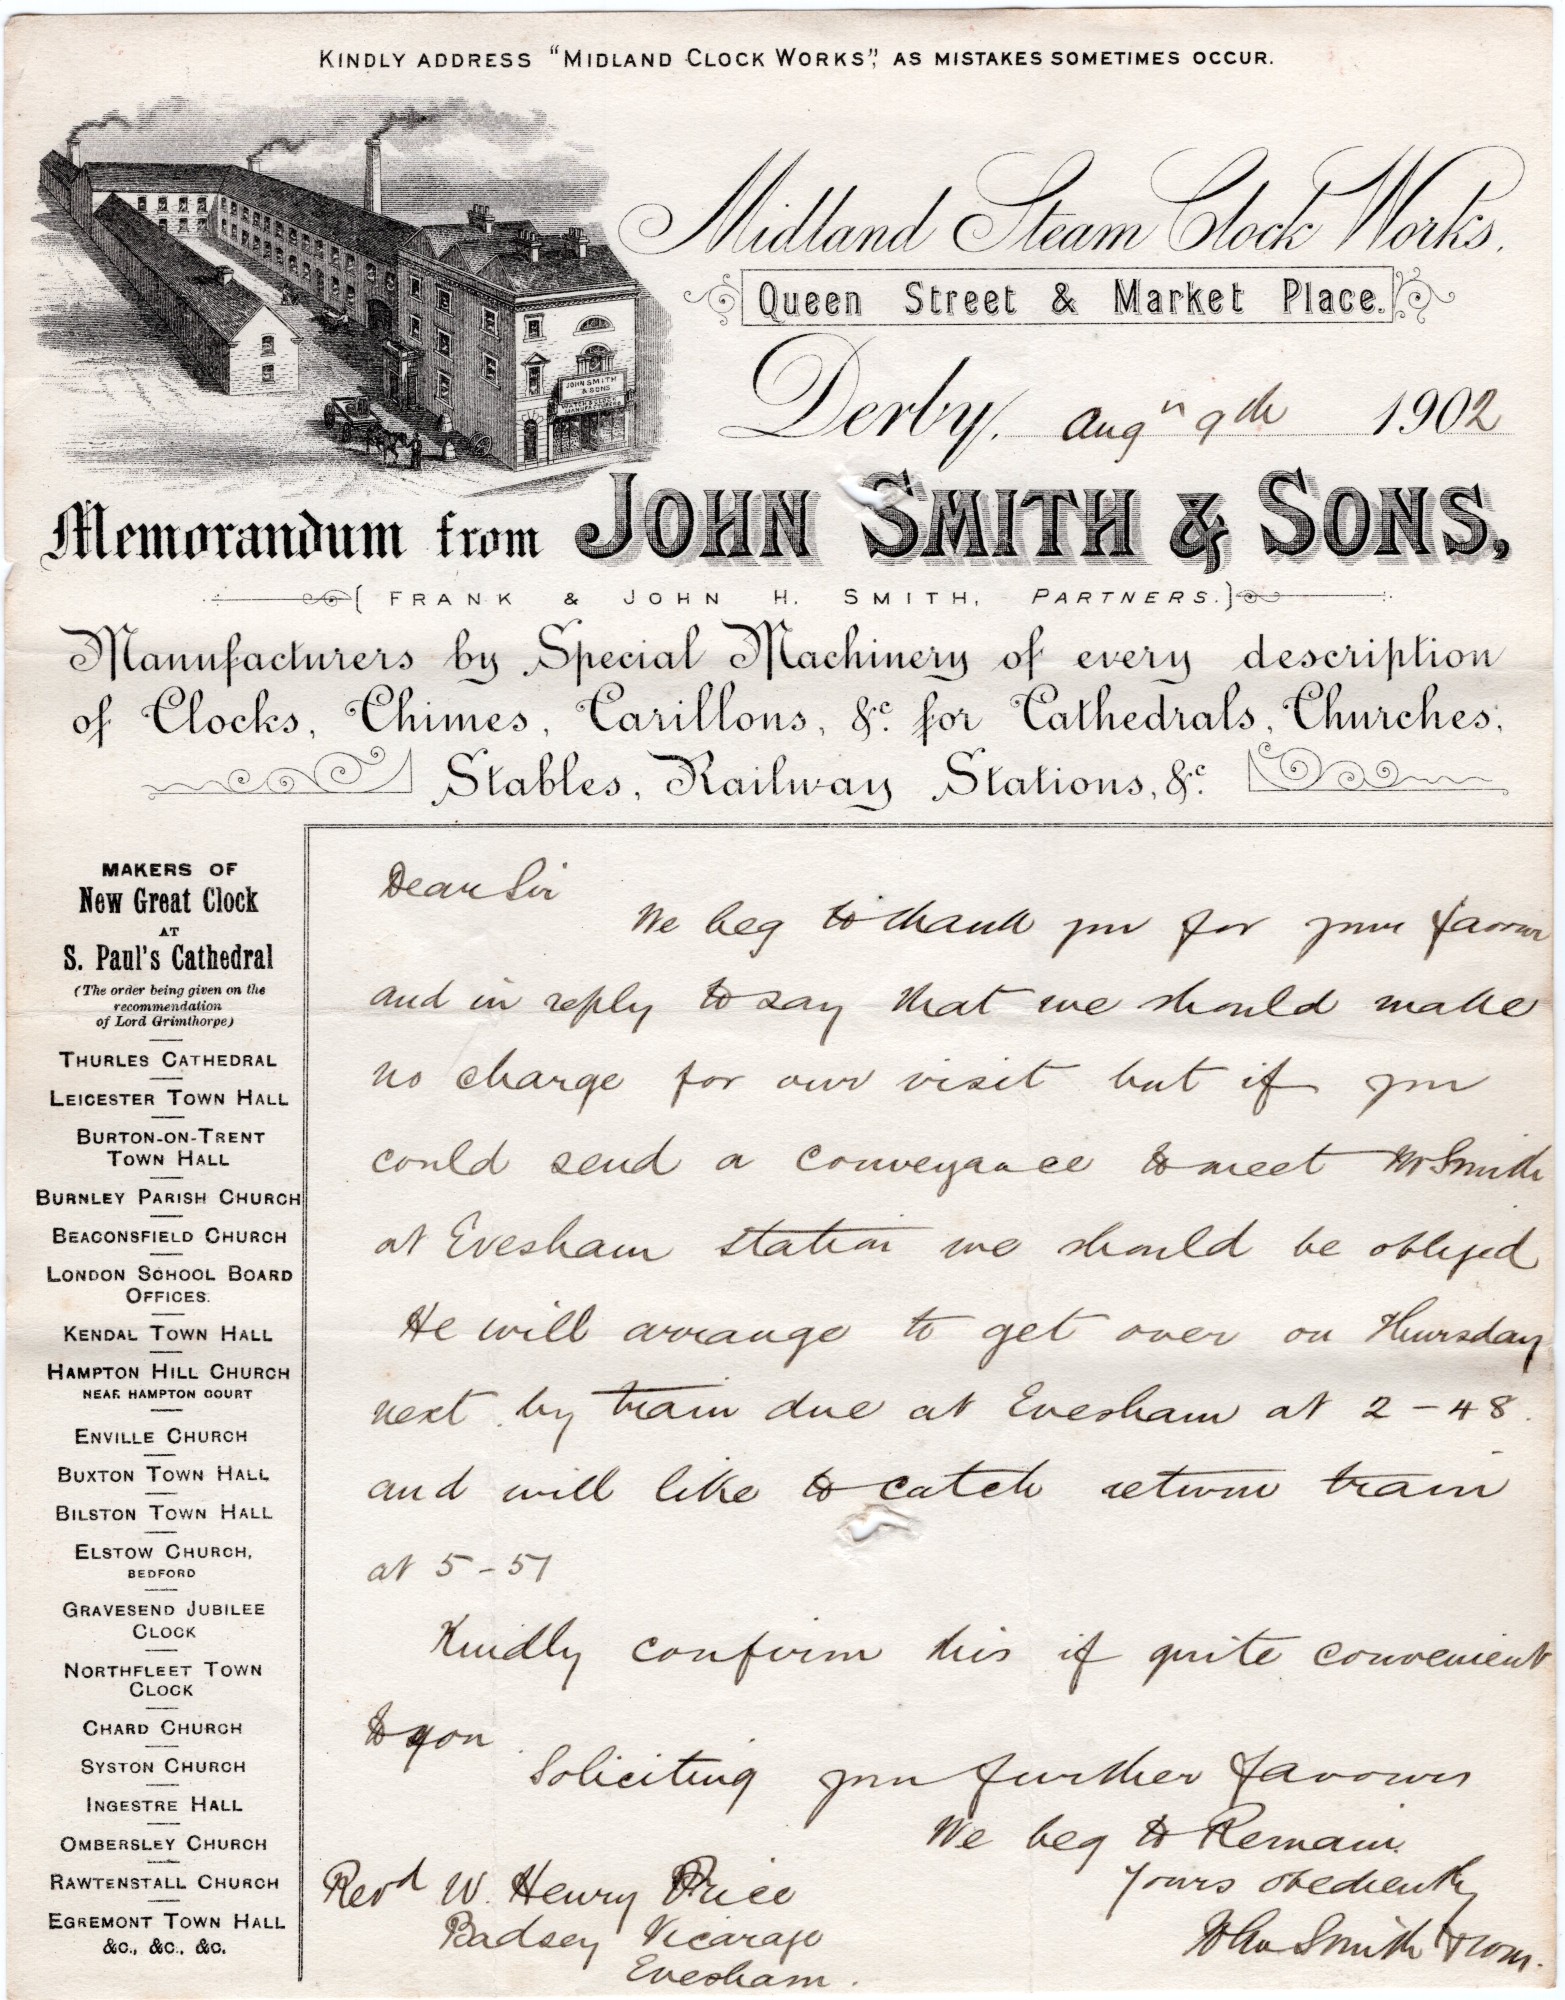 KINDLY ADDRESS "MIDLAND CLOCK WORKS", AS MISTAKES SOMETIMES OCCUR.
Midland Steam Clock Works.
Queen Street & Market Place.
Derby, Augn 9th 1902
JOHN SMITH & SONS
Memorandum from JOHN SMITH & SONS,
FRANK & JOHN H. SMITH, PARTNERS.
Manufacturers by Special Machinery of every description
of Clocks, Chimes, Carillons, &c. for Cathedrals, Churches,
Stables, Railway Stations, &c.
MAKERS OF
New Great Clock
AT
S. Paul's Cathedral
(The order being given on the
recommendation
of Lord Grimthorpe)
THURLES CATHEDRAL
LEICESTER TOWN HALL
BURTON-ON-TRENT
TOWN HALL
BURNLEY PARISH CHURCH
BEACONSFIELD CHURCH
LONDON SCHOOL BOARD
OFFICES.
KENDAL TOWN HALL
HAMPTON HILL CHURCH
NEAR HAMPTON COURT
ENVILLE CHURCH
BUXTON TOWN HALL
BILSTON TOWN HALL
ELSTOW CHURCH,
BEDFORD
GRAVESEND JUBILEE
CLOCK
NORTHFLEET TOWN
CLOCK
CHARD CHURCH
SYSTON CHURCH
INGESTRE HALL
OMBERSLEY CHURCH
RAWTENSTALL CHURCH
EGREMONT TOWN HALL
&c., &c., &c.
Dear Sir
We beg to thank you for your favour
and in reply to say that we should make
no charge for our visit but if you
could send a conveyance to meet Mr Smith
at Evesham station we should be obliged
He will arrange to get over on Thursday
next by train due at Evesham at 2-48.
and will like to catch return train
at 5-51
Kindly confirm this if quite convenient
to you
Soliciting your further favours
We beg to Remain
Yours obediently
John Smith & Sons.
Revd W. Henry Price
Badsey Vicarage
Evesham.